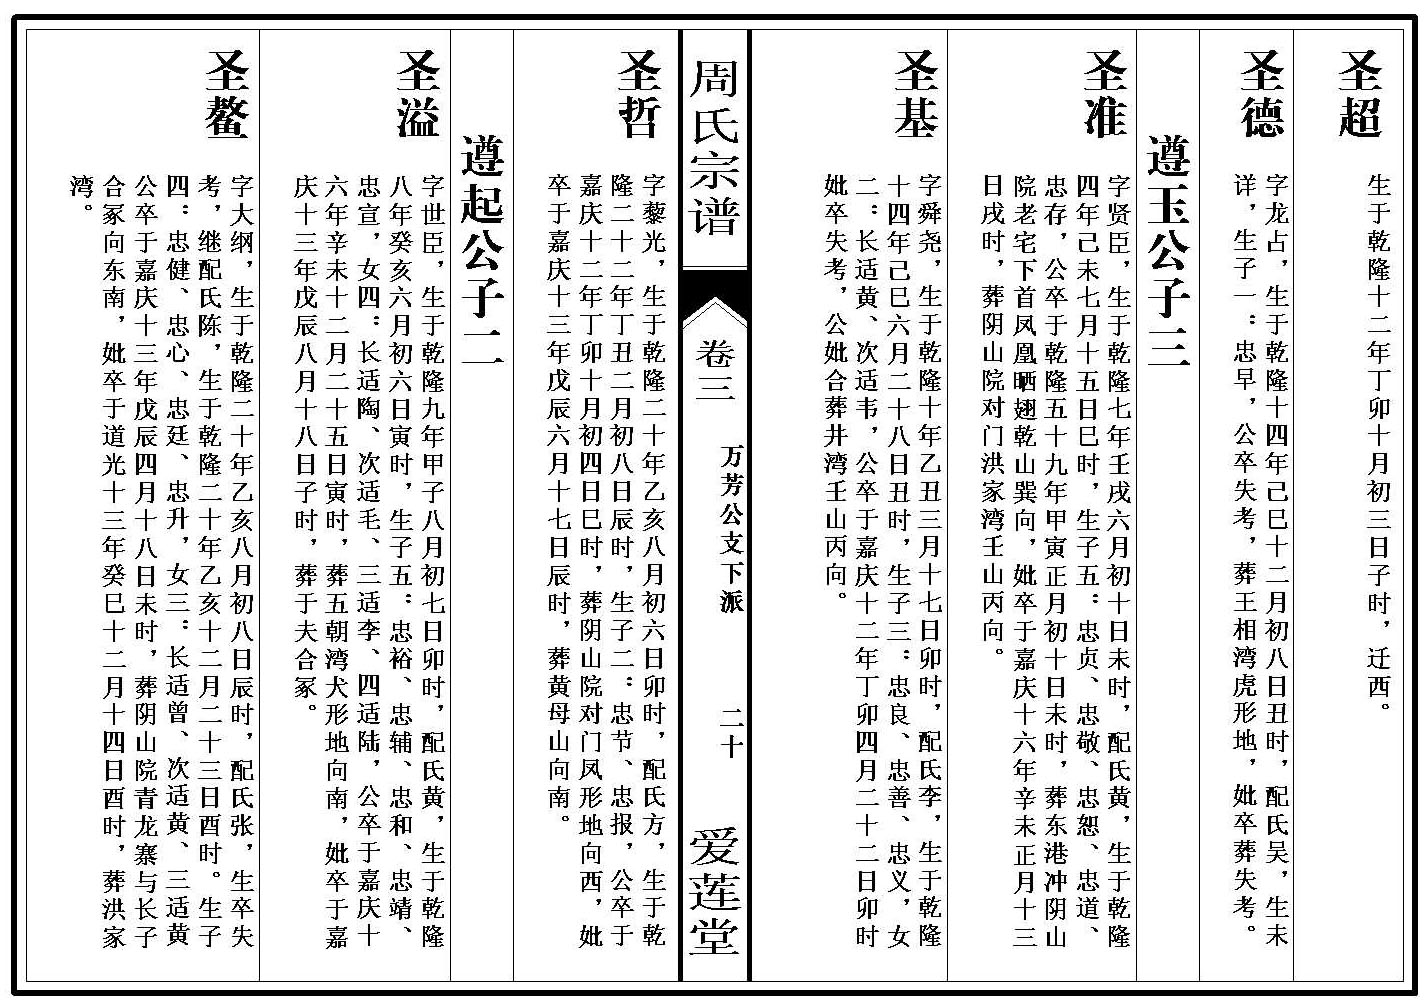 圣超
生于乾隆十二年丁卯十月初三日子时，迁西。
圣德
字龙占，生于乾隆十四年己巳十二月初八日丑时，配氏吴，生未
详，生子一：忠早，公卒失考，葬王相湾虎形地，妣卒葬失考。
遵玉公子三
圣准
字贤臣，生于乾隆七年壬戌六月初十日未时，配氏黄，生于乾隆
四年己未七月十五日巳时，生子五：忠贞、忠敬、忠恕、忠道、
忠存，公卒于乾隆五十九年甲寅正月初十日未时，葬东港冲阴山
院老宅下首凤凰晒翅乾山巽向，妣卒于嘉庆十六年辛未正月十三
日戌时，葬阴山院对门洪家湾壬山丙向。
圣基
字舜尧，生于乾隆十年乙丑三月十七日卯时，配氏李，生于乾隆
十四年己巳六月二十八日丑时，生子三：忠良、忠善、忠义，女
二：长适黄、次适韦，公卒于嘉庆十二年丁卯四月二十二日卯时
妣卒失考，公妣合葬井湾壬山丙向。
周氏宗谱
卷三
万芳公支下派
二十
爱莲堂
圣哲
字藜光，生于乾隆二十年乙亥八月初六日卯时，配氏方，生于乾
隆二十二年丁丑二月初八日辰时，生子二：忠节、忠报，公卒于
嘉庆十二年丁卯十月初四日巳时，葬阴山院对门凤形地向西，妣
卒于嘉庆十三年戊辰六月十七日辰时，葬黄母山向南。
遵起公子二
圣溢
字世臣，生于乾隆九年甲子八月初七日卯时，配氏黄，生于乾隆
八年癸亥六月初六日寅时，生子五：忠裕、忠辅、忠和、忠靖、
忠宣，女四：长适陶、次适毛、三适李、四适陆，公卒于嘉庆十
六年辛未十二月二十五日寅时，葬五朝湾犬形地向南，妣卒于嘉
庆十三年戊辰八月十八日子时，葬于夫合冢。
圣鳌
字大纲，生于乾隆二十年乙亥八月初八日辰时，配氏张，生卒失
考，继配氏陈，生于乾隆二十年乙亥十二月二十三日酉时。生子
四：忠健、忠心、忠廷、忠升，女三：长适曾、次适黄、三适黄
公卒于嘉庆十三年戊辰四月十八日未时，葬阴山院青龙寨与长子
合冢向东南，妣卒于道光十三年癸巳十二月十四日酉时，葬洪家
湾。